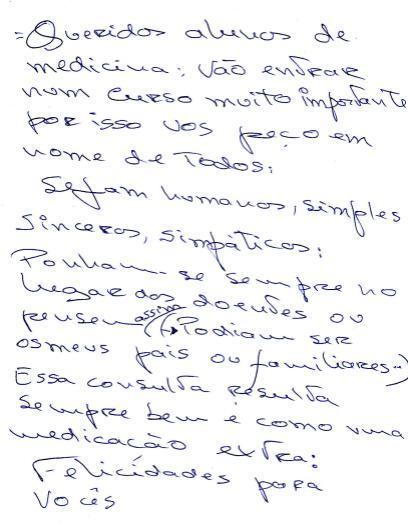 =Queridos alunos de
medicina: vão entrar
num curso muito importante
por isso vos peço em
nome de Todos:
Sejam humanos, simples
sinceros, simpáticos:
Ponham-se sempre no
lugar dos doentes ou
pensem assim (Podiam ser
os meus pais ou familiares..)
Essa consulta resulta
sempre bem é como uma
medicação extra:
Felicidades para
Vocês